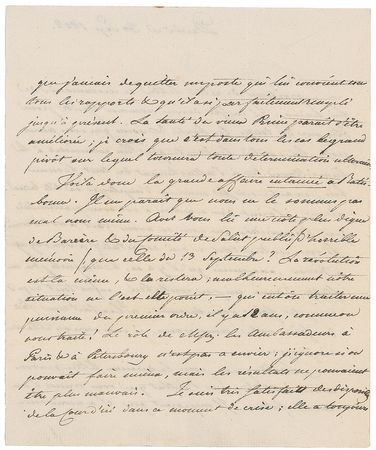 que jamais de quitter un poste qui lui convient sous
tous les rapports & qu'il a si parfaitement rempli
jusqu'à présent. La santé de vieux Prince parait s'être
améliorée; je crois que c'est dans tous les cas le grand
pivot sur lequel tournera toute détermination ultérieure.
Voilà donc la grande affaire entamée à Ratis-
bonne. Il me parait que nous ne le sommes pas
mal nous même. Avez vous lu une note plus digne
de Barère & du Comité de Salut public d'horrible
mémoire que celle du 13 Septembre? La révolution
est la même, & la restera; malheureusement nôtre
situation ne l'est point, — qui eut osé traiter une
puissance du premier ordre, il y a 12 ans, comme on
nous traite! Le rôle de Mess. les Ambassadeurs à
Paris & à Petersbourg n'est pas à envier; j'ignore si on
pouvait faire mieux, mais les résultats ne pouvaient
être plus mauvais. Je suis très satisfait des disposit
de la Cour d'ici dans ce moment de crise; elle a toujours